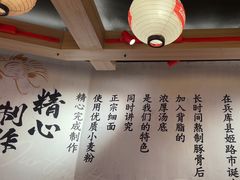 在兵库县姬路市诞
长时间熬制豚骨后
加入背脂的
浓厚汤底
是我们的特色
同时讲究
正宗细面
使用优质小麦粉
精心完成制作
精心
制作